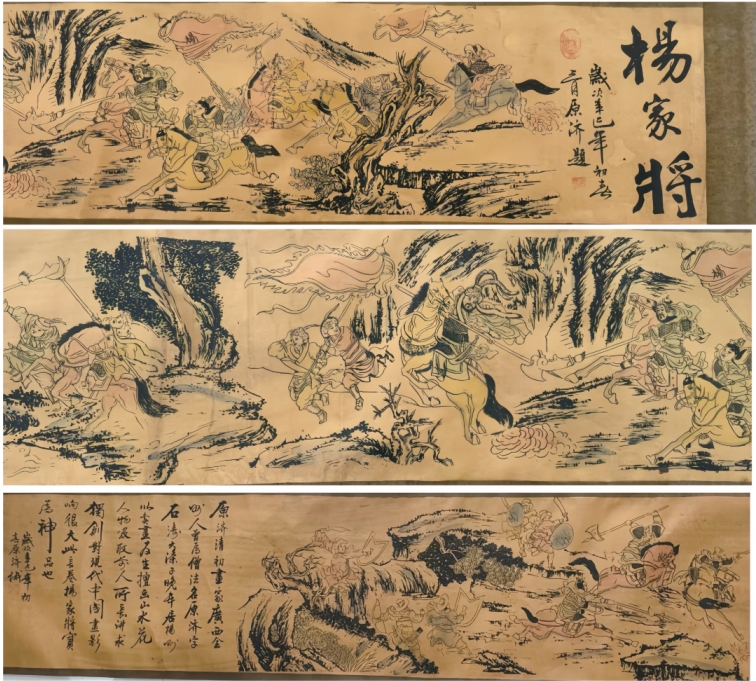 楊家將
歲次辛巳年初春
月原济題
原济清初畫家廣西全
州人曾為僧法名原济字
石涛深晚年居揚州
以賣畫為生擅画山水花
人物反取古人所長讲求
獨創對現代中國畫影
响很大此長卷楊家將實
為神品也
歲次辛巳年初
原济